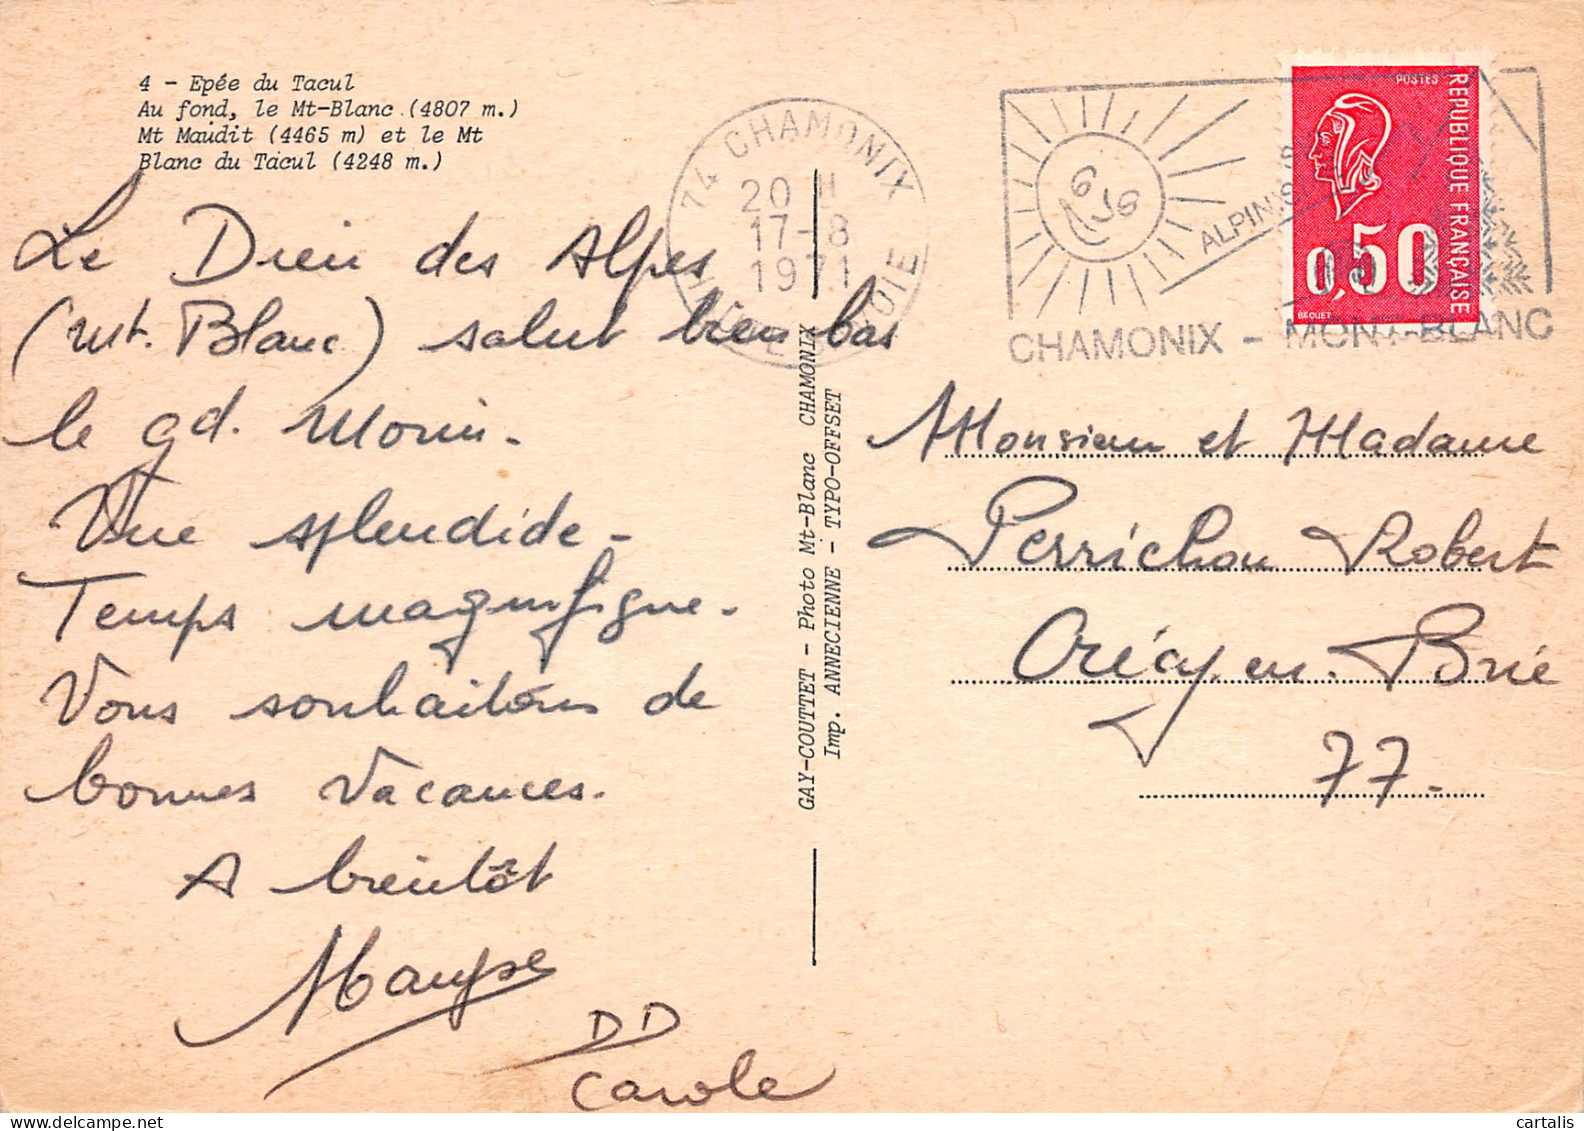 4 - Epée du Tacul
Au fond, le Mt-Blanc (4807 m.)
Mt Maudit (4465 m) et le Mt
Blanc du Tacul (4248 m.)
74 CHAMONIX
20 H
17-8
1971
HAUTE SAVOIE
ALPINIS
CHAMONIX - MONT-BLANC
POSTES
REPUBLIQUE FRANÇAISE
0,50
BEQUET
Le Dieu des Alpes
(mt. Blanc) salut bien bas
le gd. Morin.
Vue splendide -
Temps magnifique.
Vous souhaitons de
bonnes vacances.
A bientôt
DD
Carole
GAY-COUTTET - Photo Mt-Blanc CHAMONIX
Imp. ANNECIENNE - TYPO-OFFSET
Monsieur et Madame
Perrichon Robert
Crécy. en. Brie
77.
delcampe.net
cartalis